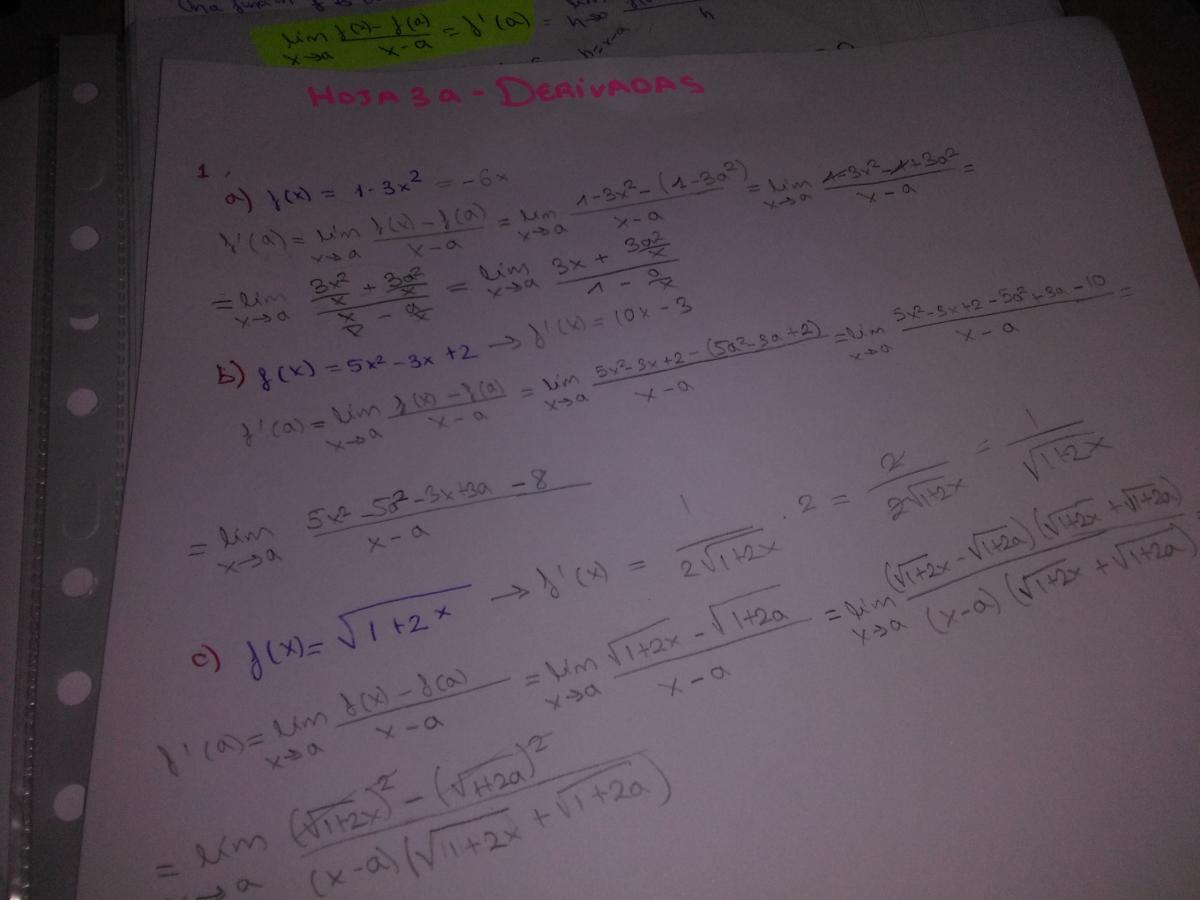 lim x→a (f(x) - f(a))/(x-a) = f'(a) = lim h→0
h=x-a
HOJA 3a - DERIVADAS
1.
a) f(x) = 1-3x² = -6x
f'(a) = lim x→a (f(x)-f(a))/(x-a) = lim x→a (1-3x²-(1-3a²))/(x-a) = lim x→a (1-3x²-1+3a²)/(x-a) =
= lim x→a (3x²/x + 3a²/x)/(x/x - a/x) = lim x→a (3x + 3a²/x)/(1 - a/x)
b) f(x) = 5x²-3x+2 → f'(x) = 10x-3
f'(a) = lim x→a (f(x)-f(a))/(x-a) = lim x→a (5x²-3x+2-(5a²-3a+2))/(x-a) = lim x→a (5x²-3x+2-5a²+3a-10)/(x-a) =
= lim x→a (5x²-5a²-3x+3a-8)/(x-a)
c) f(x) = √(1+2x) → f'(x) = 1/(2√(1+2x)) · 2 = 2/(2√(1+2x)) = 1/√(1+2x)
f'(a) = lim x→a (f(x)-f(a))/(x-a) = lim x→a (√(1+2x)-√(1+2a))/(x-a) = lim x→a ((√(1+2x)-√(1+2a))(√(1+2x)+√(1+2a)))/((x-a)(√(1+2x)+√(1+2a))) =
= lim x→a ((√(1+2x))²-(√(1+2a))²)/((x-a)(√(1+2x)+√(1+2a)))